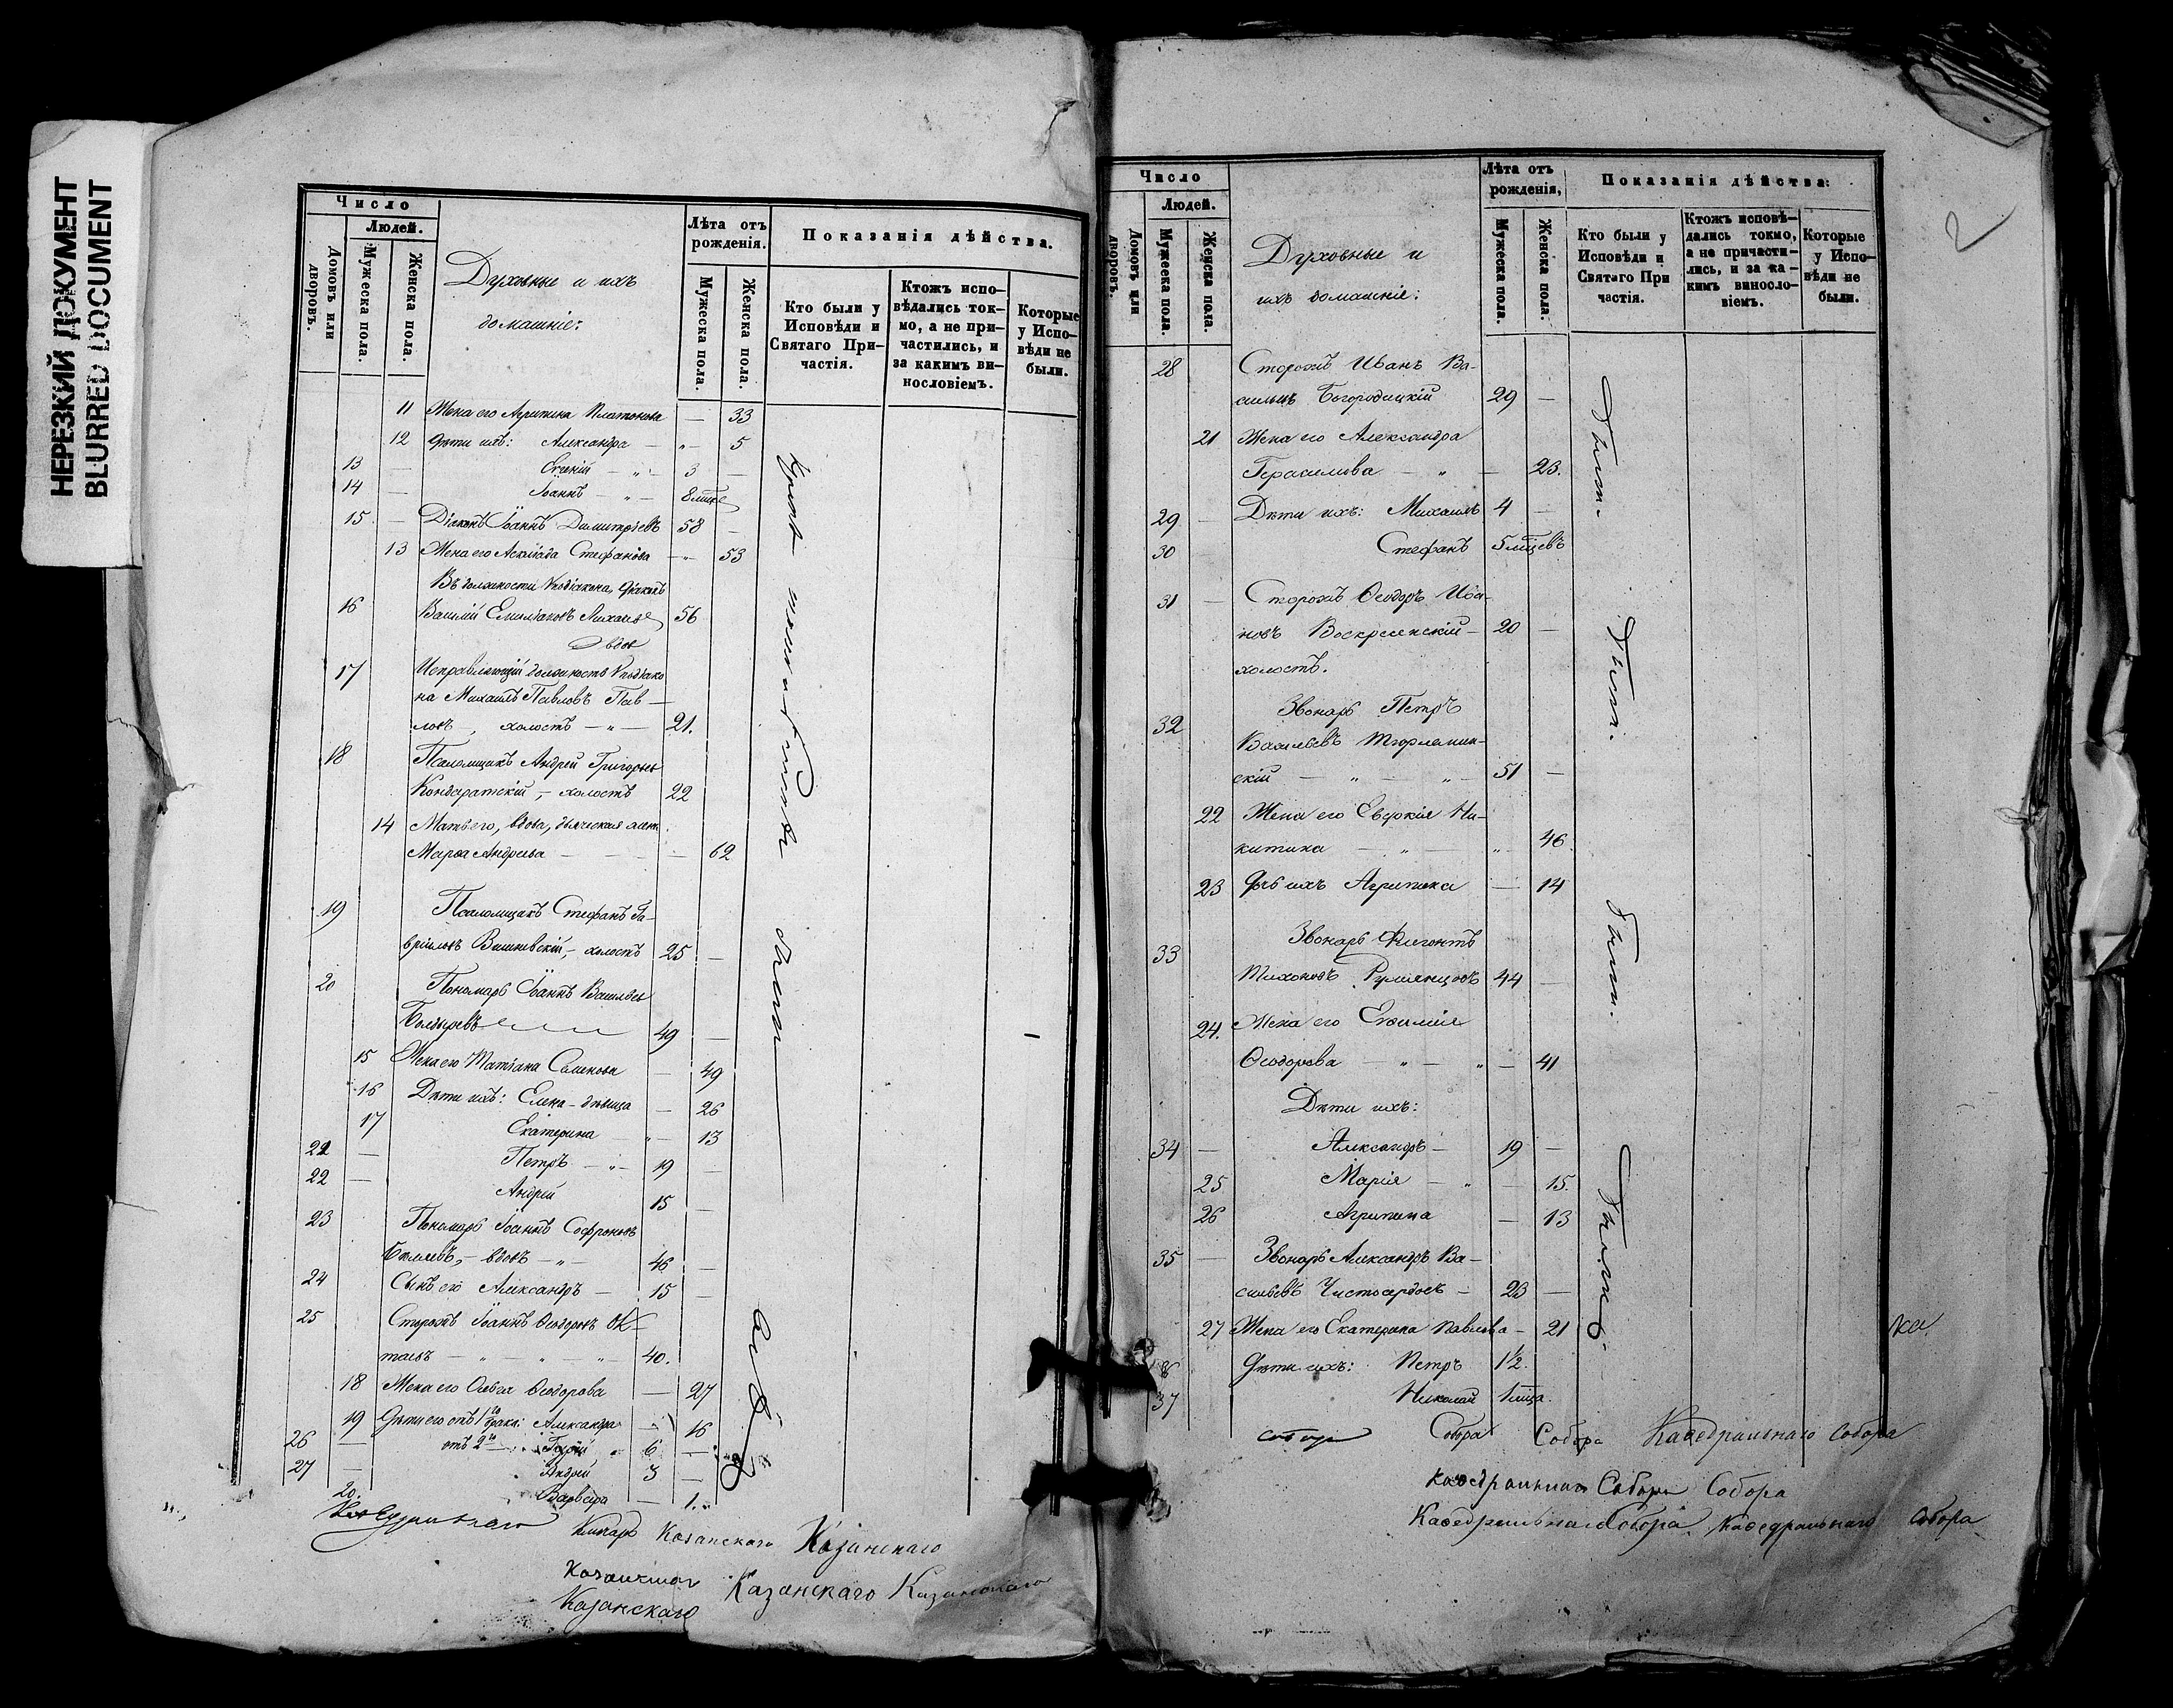 НЕРЕЗКИЙ ДОКУМЕНТ
BLURRED DOCUMENT
Число
Людей.
Домовъ или дворовъ.
Мужеска пола.
Женска пола.
Духовные и ихъ
домашніе:
Лѣта отъ
рожденія.
Мужеска пола.
Женска пола.
Показанія дѣйства.
Кто были у
Исповѣди и
Святаго При-
частія.
Ктожъ испо-
вѣдались ток-
мо, а не при-
частились, и
за какимъ ви-
нословіемъ.
Которые
у Испо-
вѣди не
были.
11 Жена его Агрипина Платонова — 33
12 Дѣти ихъ: Александра — „ — 5
13 — Евгеній — „ — 3 —
14 — Іоаннъ — „ — 8 мцѣ
15 — Діаконъ Іоаннъ Димитріевъ 58 —
13 Жена его Стефанова — „ — 53
Въ должности Vподіакона, Діаконъ
16 Василій Емиліановъ 56
вдов
17 Исправляющій должность Vподіако
на Михаилъ Павловъ Пав—
ловъ, холостъ — „ — 21.
18 Псаломщикъ Андрей Григорьев
Кондаратскій, — холостъ 22
14 Мать его, вдова, дьяческая жена
Марѳа Андреева — — — 62
19 Псаломщикъ Стефанъ Га-
вріиловъ Вишневскій, — холостъ 25 —
20 Пономарь Іоаннъ Васильев
Болдыревъ 49 —
15 Жена его Татіана Семенова — 49
16 Дѣти ихъ: Елена — дѣвица — 26
17 Екатерина — „ — 13
21 — Петръ — „ — 19 —
22 — Андрей 15 —
23 Пономарь Іоаннъ Софроновъ
Бѣляевъ, — вдовъ — „ — 46 —
24 Сынъ его Александръ — 15 —
25 Сторожъ Іоаннъ Ѳеодоровъ Ок-
таевъ — „ — „ — „ — 40.
18 Жена его Ольга Ѳеодорова — 27
19 Дѣти его отъ 1го брака: Александра — 16
26 — отъ 2го — Гурій „ 6 —
27 — Андрей 3 —
20. Варвара — 1. „
были
Казанскаго Казанскаго
Казанскаго Казанскаго
Казанскаго
2
Число
Людей.
Домовъ или дворовъ.
Мужеска пола.
Женска пола.
Духовные и
ихъ домашніе:
Лѣта отъ
рожденія,
Мужеска пола.
Женска пола.
Показанія дѣйства:
Кто были у
Исповѣди и
Святаго При
частія.
Ктожъ исповѣ—
дались токмо,
а не причасти—
лись, и за ка—
кимъ винословіемъ.
Которые
у Испо—
вѣди не
были.
28 Сторожъ Иванъ Ва-
сильевъ Богородицкій 29 —
21 Жена его Александра
Герасимова — „ — 23.
29 — Дѣти ихъ: Михаилъ 4 —
30 Стефанъ 5 мцевъ
31 — Сторожъ Ѳеодоръ Ива-
новъ Воскресенскій — 20 —
холостъ.
32 Звонарь Петръ
Васильевъ Тюрлемин-
скій — „ — „ — 51 —
22 Жена его Евдокія Ни-
китина — „ — „ 46.
23 Дочь ихъ Агрипина — 14
33 Звонарь Флегонтъ
Тихоновъ Румянцовъ 44 —
24. Жена его Евфимія
Ѳеодорова — „ — „ — 41
Дѣти ихъ:
34 — Александръ — 19 —
25 Марія — „ — 15.
26 Агрипина — 13
35 — Звонарь Александръ Ва-
сильевъ Чистосердовъ — 23 —
27 Жена его Екатерина Павлова — 21
36 Дѣти ихъ: Петръ 1½.
37 Николай 1 мца.
Были.
Были.
Были.
Были.
ка.
Собора Собора Каѳедральнаго Собора
Каѳедральнаго Собора Собора
Каѳедральнаго Собора Каѳедральнаго Собора